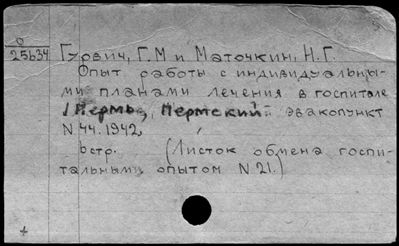 0
25634 Гурвич, Г.М и Маточкин, Н.Г.
Опыт работы с индивидуальны-
ми планами лечения в госпитале
/Пермь, Пермский эвакопункт
N 44. 1942,
6 стр. (Листок обмена госпи-
тальным опытом N 21.)